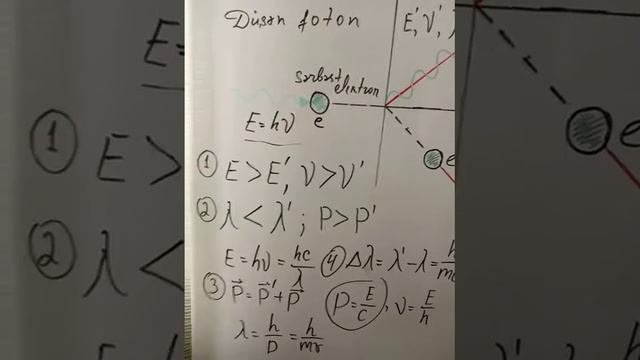 Düşən foton
E', ν', λ
sərbəst
elektron
e
E=hν
e
① E>E', ν>ν'
② λ<λ'; P>P'
E=hν=hc/λ
④ Δλ=λ'-λ=h/m
③ P⃗=P⃗'+P⃗
P=E/c, ν=E/h
λ=h/p=h/mv